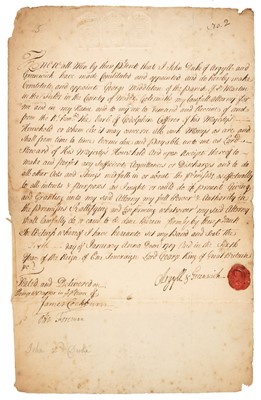 No. 2
Know all Men by these Presents that I John Duke of Argyll and
Greenwich have made Constituted and appointed and do hereby make
Constitute and appoint George Middleton of the parish of St. Martin
in the Fields in the County of Middx Goldsmith my Lawfull Attorney for
me and in my Name and to my use to Demand and Receive of and
from the Rt. honble. the Earl of Godolphin Cofferer of his Majestys
Household or whom else it may concern all such Moneys as are and
shall from time to time become due and payable unto me as Lord
Steward of his Majestys Household And upon Receipt thereof to
make and passe any sufficient Acquittances or Discharges and to do
all other Acts and things needfull in or about the premisses as effectually
to all intents & purposes as I might or could do if present Giving
and Granting unto my said Attorney my full Power & Authority in
the premisses Ratifying and Confirming whatsoever my said Attorney
shall lawfully do or cause to be done therein by these presents
In Witness whereof I have hereunto set my hand and Seal the
day of January Anno Dom 1719 And in the Sixth
Year of the Reign of our Sovereign Lord George King of Great Britain &c
Argyll & Greenwich
Sealed and Delivered in
the presence of
James Cockburn